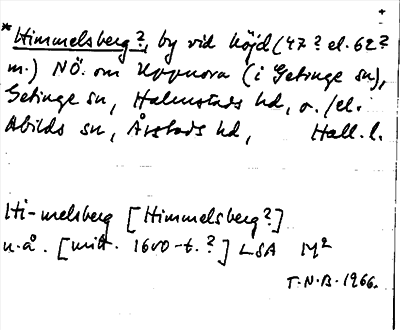 *Himmelsberg?, by vid höjd (47? el. 62?
m.) NÖ. om Uppnora (i Getinge sn),
Getinge sn, Halmstads hd, o./el.
Abilds sn, Årstads hd, Hall. l.
Hi-melsberg [Himmelsberg?]
u.å. [mitt. 1600-t.?] LSA M²
T.N.B. 1966.